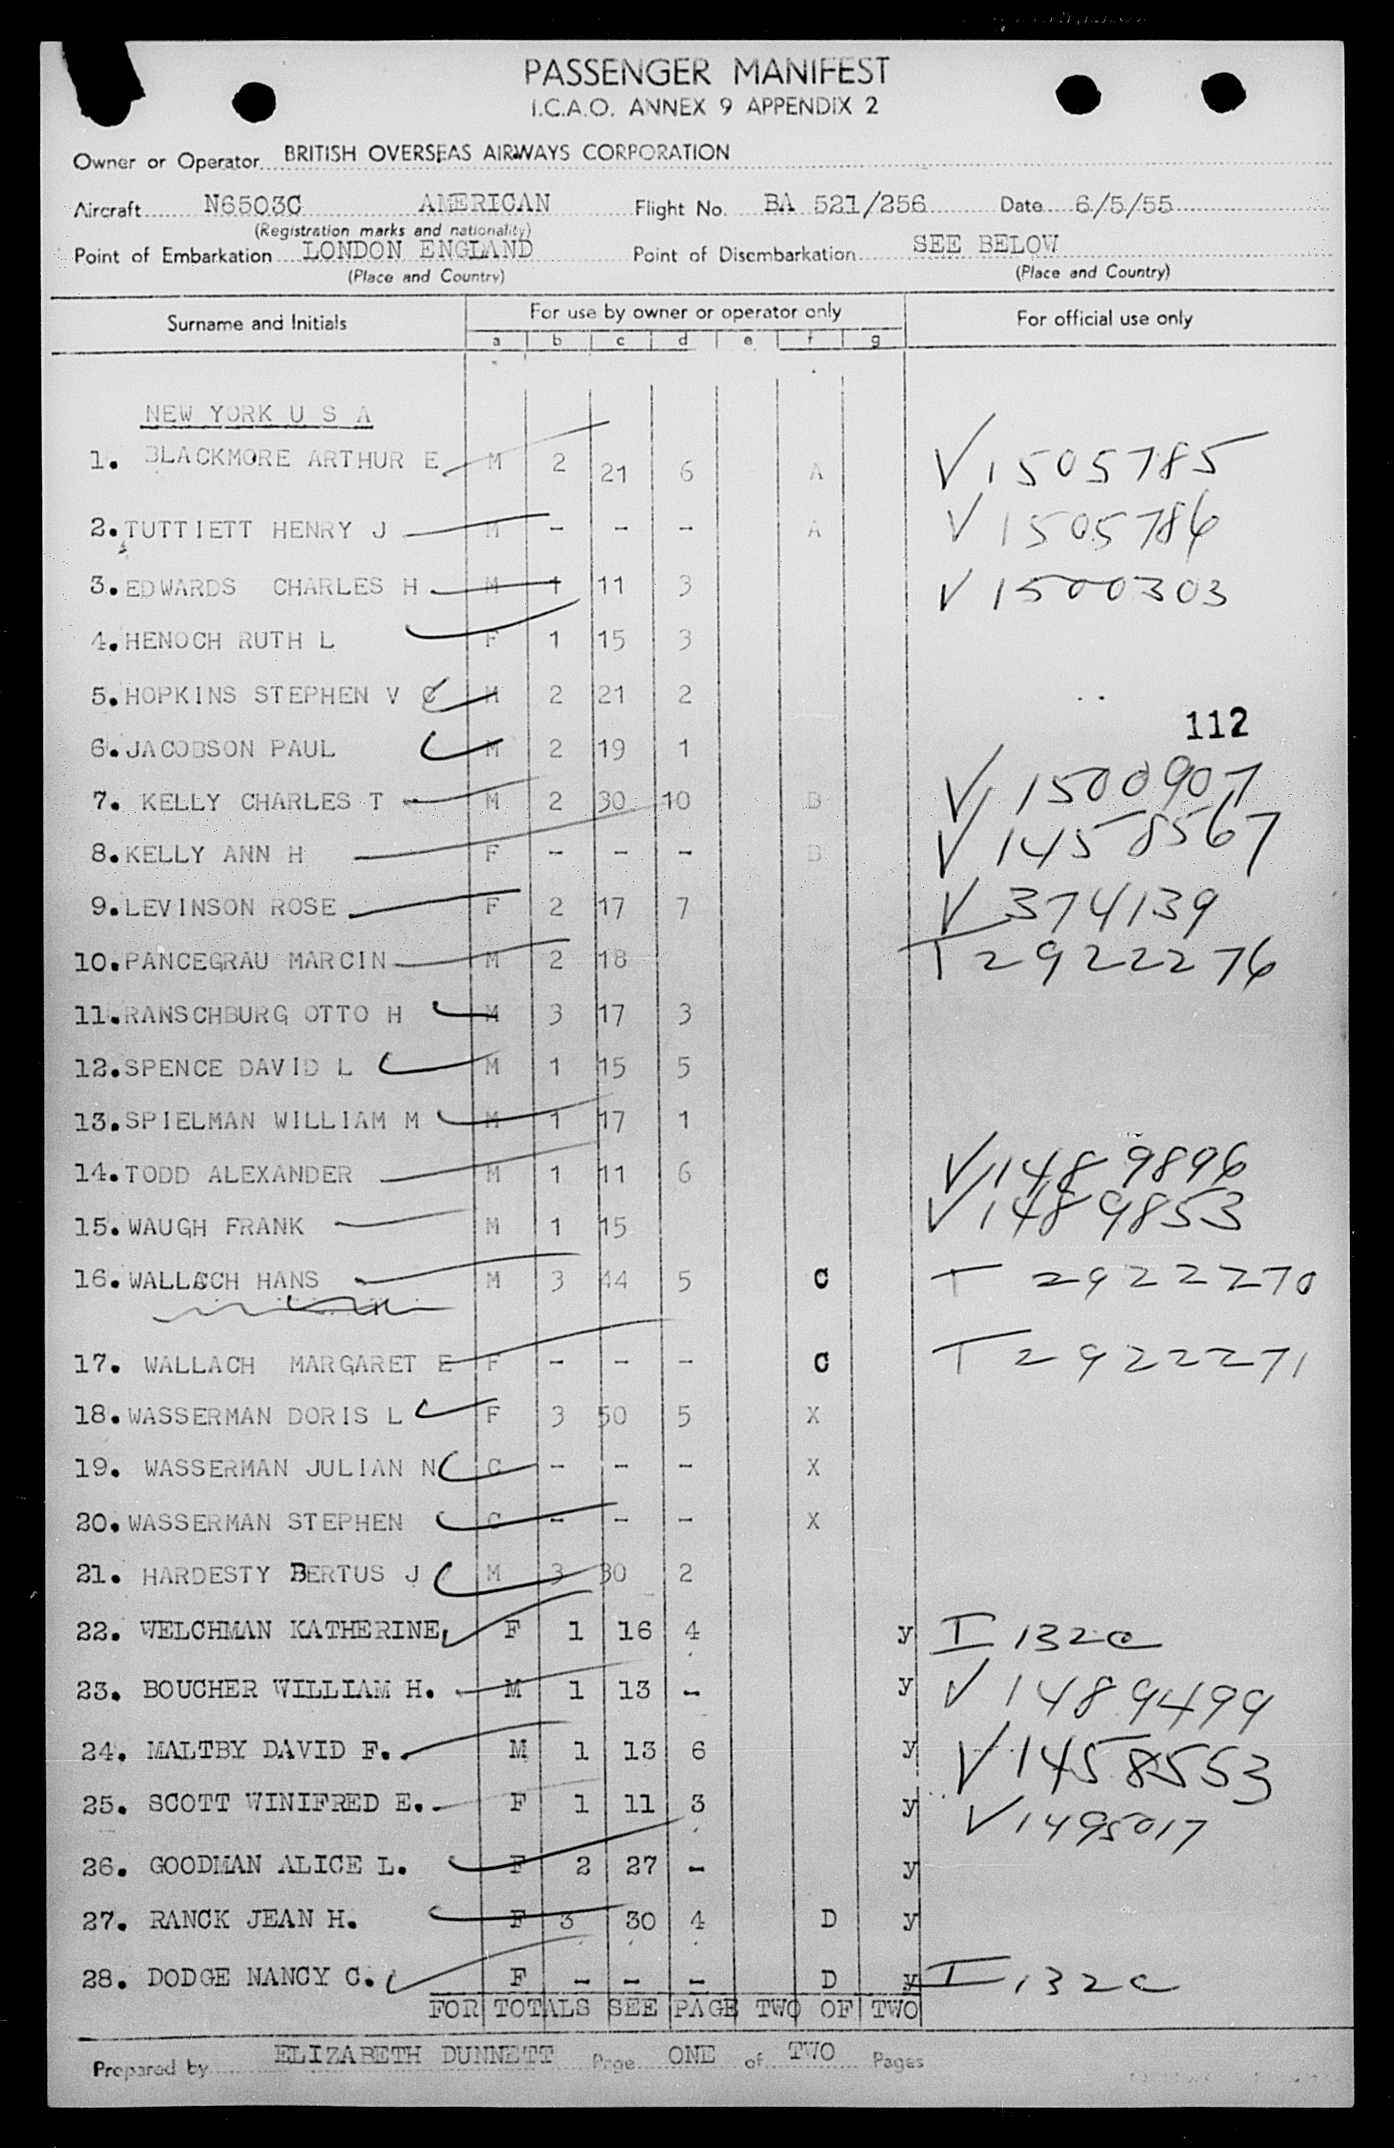 PASSENGER MANIFEST
I.C.A.O. ANNEX 9 APPENDIX 2
Owner or Operator BRITISH OVERSEAS AIRWAYS CORPORATION
Aircraft N6503C AMERICAN Flight No. BA 521/256 Date 6/5/55
(Registration marks and nationality)
Point of Embarkation LONDON ENGLAND Point of Disembarkation SEE BELOW
(Place and Country) (Place and Country)
Surname and Initials For use by owner or operator only For official use only
a b c d e f g
NEW YORK U S A
1. BLACKMORE ARTHUR E M 2 21 6 A V 1505785
2. TUTTIETT HENRY J M - - - A V 1505786
3. EDWARDS CHARLES H M 1 11 3 V 1500303
4. HENOCH RUTH L F 1 15 3
5. HOPKINS STEPHEN V C M 2 21 2
112
6. JACOBSON PAUL M 2 19 1
7. KELLY CHARLES T M 2 30 10 B V 1500907
8. KELLY ANN H F - - - B V 1458567
9. LEVINSON ROSE F 2 17 7 V 374139
10. PANCEGRAU MARCIN M 2 18 T 2922276
11. RANSCHBURG OTTO H M 3 17 3
12. SPENCE DAVID L M 1 15 5
13. SPIELMAN WILLIAM M M 1 17 1
14. TODD ALEXANDER M 1 11 6 V 1489896
15. WAUGH FRANK M 1 15 V 1489853
16. WALLACH HANS M 3 44 5 C T 2922270
17. WALLACH MARGARET E F - - - C T 2922271
18. WASSERMAN DORIS L F 3 50 5 X
19. WASSERMAN JULIAN N C - - - X
20. WASSERMAN STEPHEN C - - - X
21. HARDESTY BERTUS J M 3 30 2
22. WELCHMAN KATHERINE F 1 16 4 y I 132c
23. BOUCHER WILLIAM H. M 1 13 - y V 1489499
24. MALTBY DAVID F. M 1 13 6 y V 1458553
25. SCOTT WINIFRED E. F 1 11 3 y V 1495017
26. GOODMAN ALICE L. F 2 27 - y
27. RANCK JEAN H. F 3 30 4 D y
28. DODGE NANCY C. F - - - D y I 132c
FOR TOTALS SEE PAGE TWO OF TWO
Prepared by ELIZABETH DUNNETT Page ONE of TWO Pages